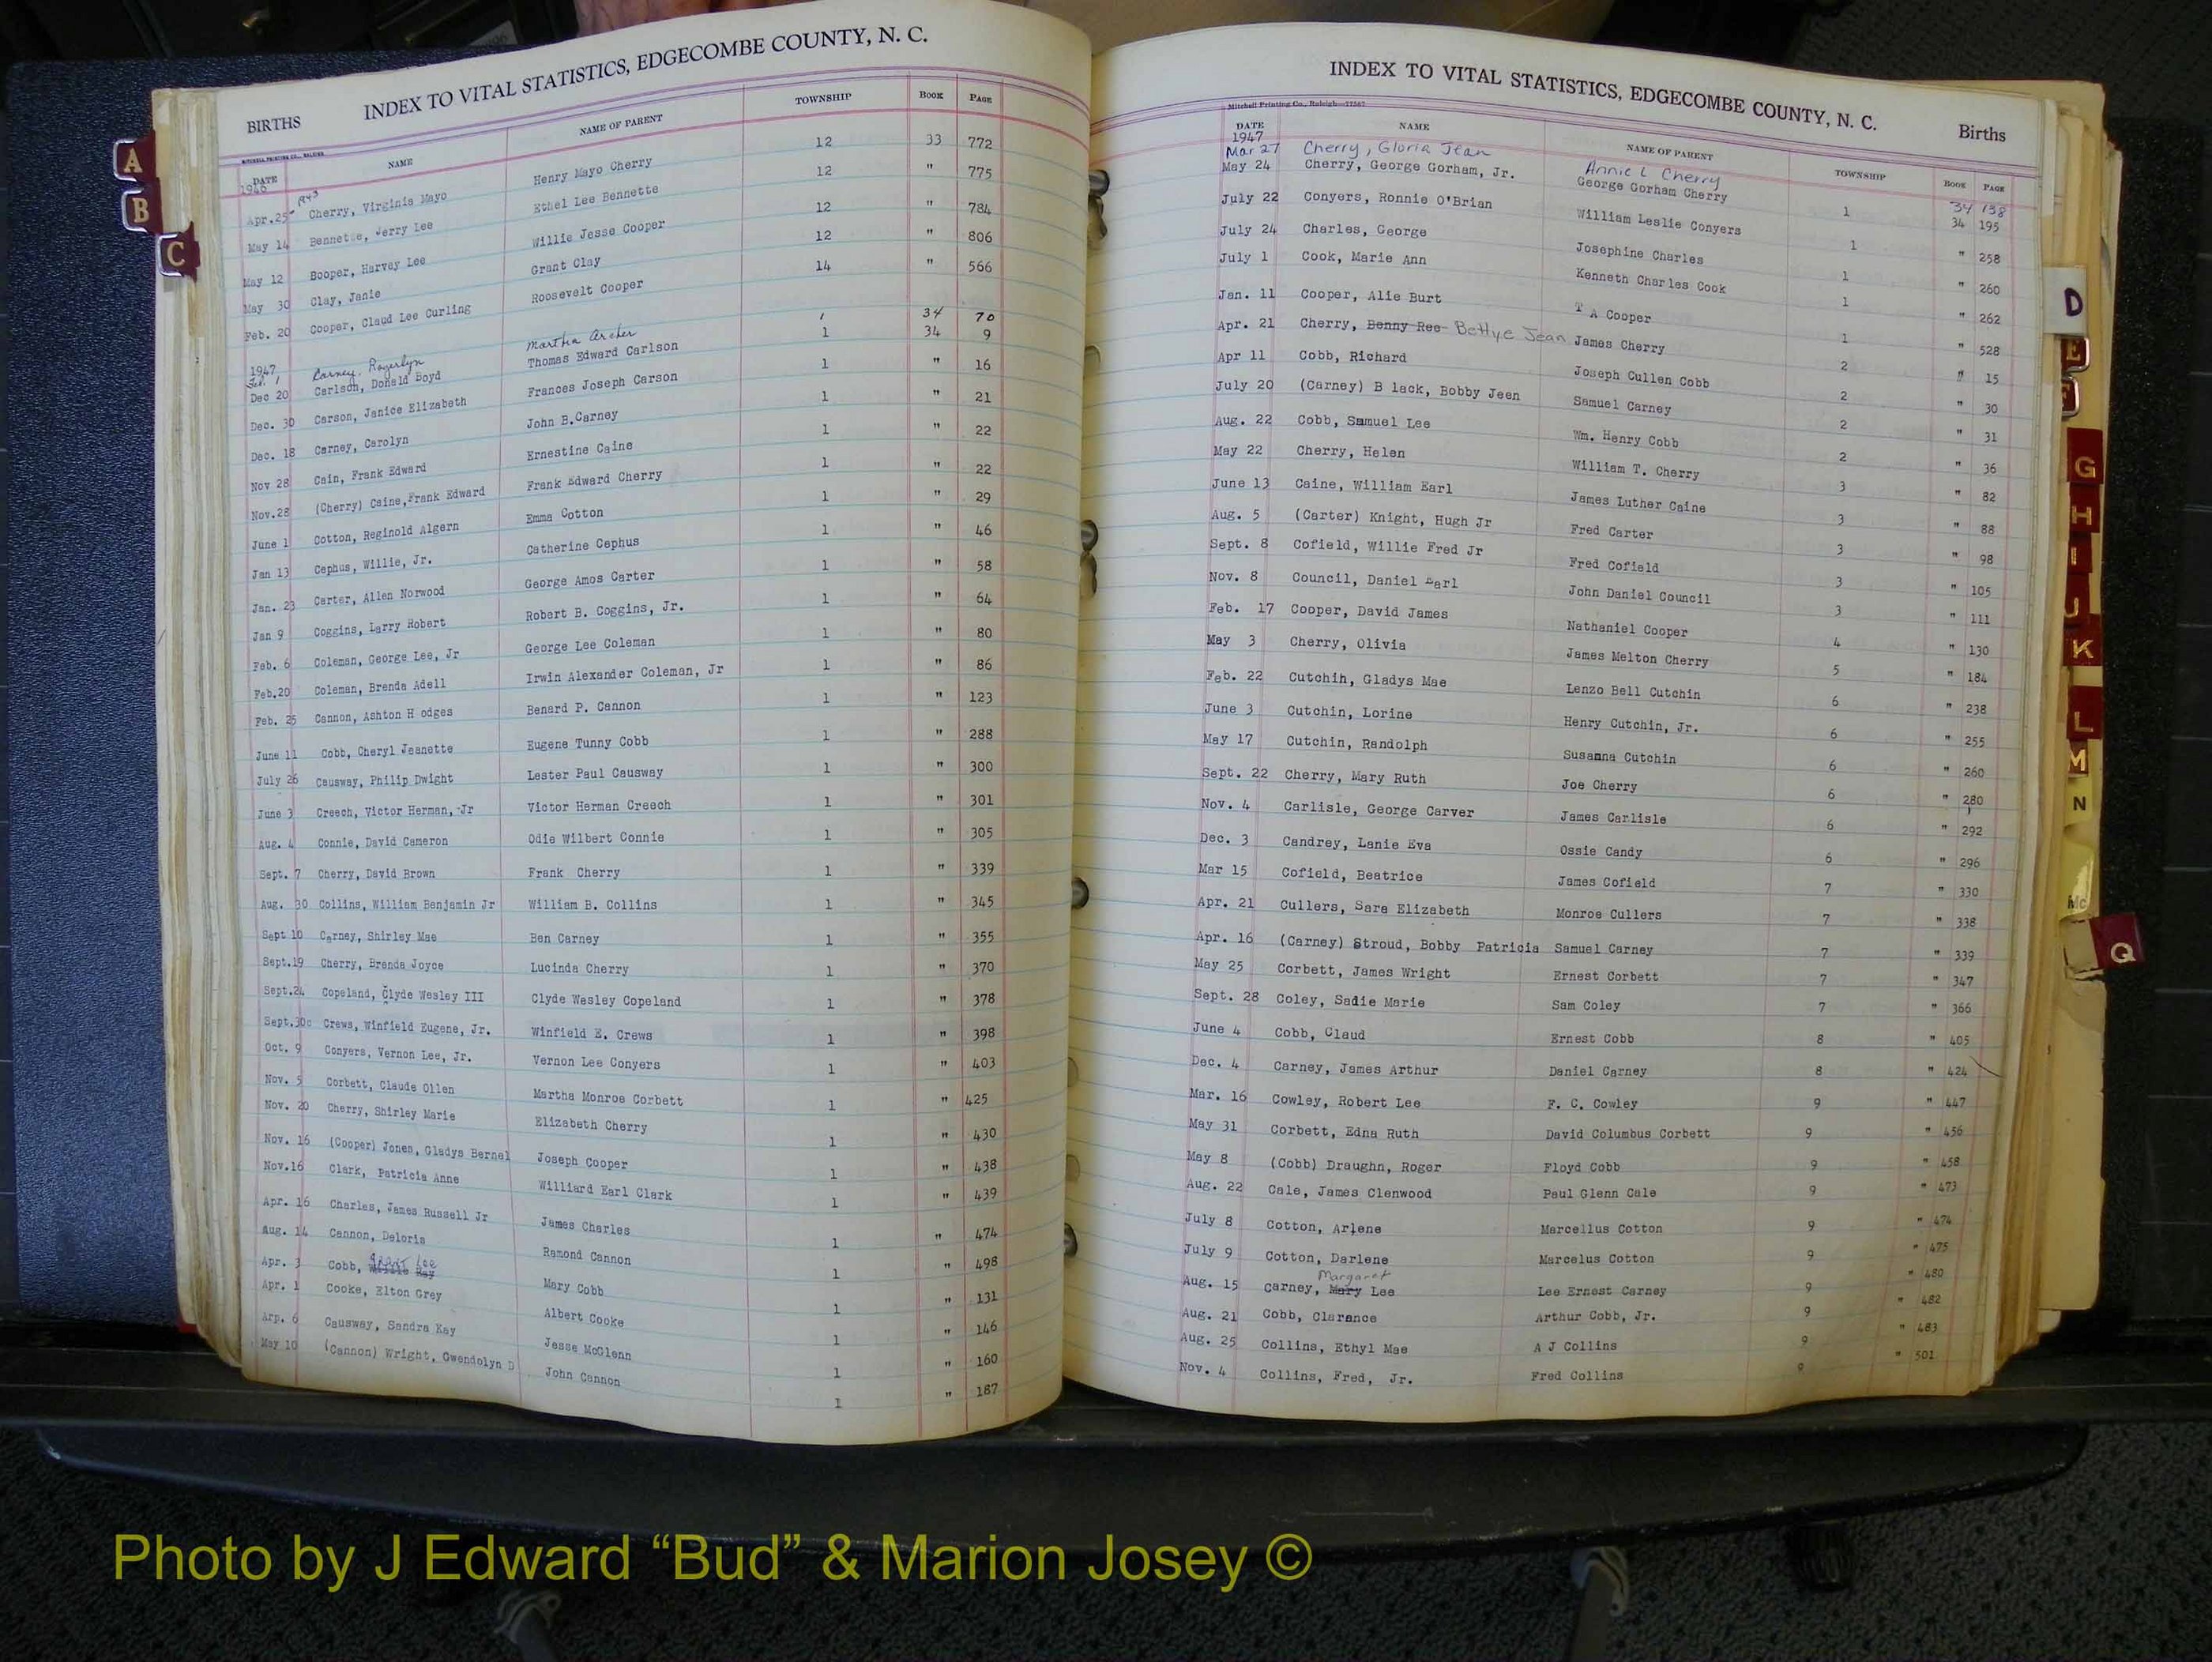 INDEX TO VITAL STATISTICS, EDGECOMBE COUNTY, N. C.
BIRTHS
DATE NAME NAME OF PARENT TOWNSHIP BOOK PAGE
1946
Apr.25 1943 Cherry, Virginia Mayo Henry Mayo Cherry 12 33 772
May 14 Bennette, Jerry Lee Ethel Lee Bennette 12 " 775
May 12 Booper, Harvey Lee Willie Jesse Cooper 12 " 784
May 30 Clay, Janie Grant Clay 12 " 806
Feb. 20 Cooper, Claud Lee Curling Roosevelt Cooper 14 " 566
1947
Feb. 1 Carney, Rogerlyn Martha Archer 1 34 70
Dec 20 Carlson, Donald Boyd Thomas Edward Carlson 1 34 9
Dec. 30 Carson, Janice Elizabeth Frances Joseph Carson 1 " 16
Dec. 18 Carney, Carolyn John B.Carney 1 " 21
Nov 28 Cain, Frank Edward Ernestine Caine 1 " 22
Nov.28 (Cherry) Caine,Frank Edward Frank Edward Cherry 1 " 22
June 1 Cotton, Reginold Algern Emma Cotton 1 " 29
Jan 13 Cephus, Willie, Jr. Catherine Cephus 1 " 46
Jan. 23 Carter, Allen Norwood George Amos Carter 1 " 58
Jan 9 Coggins, Larry Robert Robert B. Coggins, Jr. 1 " 64
Feb. 6 Coleman, George Lee, Jr George Lee Coleman 1 " 80
Feb.20 Coleman, Brenda Adell Irwin Alexander Coleman, Jr 1 " 86
Feb. 25 Cannon, Ashton H odges Benard P. Cannon 1 " 123
June 11 Cobb, Cheryl Jeanette Eugene Tunny Cobb 1 " 288
July 26 Causway, Philip Dwight Lester Paul Causway 1 " 300
June 3 Creech, Victor Herman, Jr Victor Herman Creech 1 " 301
Aug. 4 Connie, David Cameron Odie Wilbert Connie 1 " 305
Sept. 7 Cherry, David Brown Frank Cherry 1 " 339
Aug. 30 Collins, William Benjamin Jr William B. Collins 1 " 345
Sept 10 Carney, Shirley Mae Ben Carney 1 " 355
Sept.19 Cherry, Brenda Joyce Lucinda Cherry 1 " 370
Sept.24 Copeland, Clyde Wesley III Clyde Wesley Copeland 1 " 378
Sept.30c Crews, Winfield Eugene, Jr. Winfield E. Crews 1 " 398
Oct. 9 Conyers, Vernon Lee, Jr. Vernon Lee Conyers 1 " 403
Nov. 5 Corbett, Claude Ollen Martha Monroe Corbett 1 " 425
Nov. 20 Cherry, Shirley Marie Elizabeth Cherry 1 " 430
Nov. 16 (Cooper) Jones, Gladys Bernel Joseph Cooper 1 " 438
Nov.16 Clark, Patricia Anne Williard Earl Clark 1 " 439
Apr. 16 Charles, James Russell Jr James Charles 1 " 474
Aug. 14 Cannon, Deloris Ramond Cannon 1 " 498
Apr. 3 Cobb, Willie Ray Lee Mary Cobb 1 " 131
Apr. 1 Cooke, Elton Grey Albert Cooke 1 " 146
Arp. 6 Causway, Sandra Kay Jesse McGlenn 1 " 160
May 10 (Cannon) Wright, Gwendolyn D John Cannon 1 " 187
INDEX TO VITAL STATISTICS, EDGECOMBE COUNTY, N. C.
Births
Mitchell Printing Co., Raleigh
DATE NAME NAME OF PARENT TOWNSHIP BOOK PAGE
1947
Mar 27 Cherry, Gloria Jean Annie L Cherry 34 138
May 24 Cherry, George Gorham, Jr. George Gorham Cherry 1 34 195
July 22 Conyers, Ronnie O'Brian William Leslie Conyers 1 " 258
July 24 Charles, George Josephine Charles 1 " 260
July 1 Cook, Marie Ann Kenneth Charles Cook 1 " 262
Jan. 11 Cooper, Alie Burt T A Cooper 1 " 528
Apr. 21 Cherry, Benny Ree Bettye Jean James Cherry 2 " 15
Apr 11 Cobb, Richard Joseph Cullen Cobb 2 " 30
July 20 (Carney) B lack, Bobby Jeen Samuel Carney 2 " 31
Aug. 22 Cobb, Samuel Lee Wm. Henry Cobb 2 " 36
May 22 Cherry, Helen William T. Cherry 3 " 82
June 13 Caine, William Earl James Luther Caine 3 " 88
Aug. 5 (Carter) Knight, Hugh Jr Fred Carter 3 " 98
Sept. 8 Cofield, Willie Fred Jr Fred Cofield 3 " 105
Nov. 8 Council, Daniel Earl John Daniel Council 3 " 111
Feb. 17 Cooper, David James Nathaniel Cooper 4 " 130
May 3 Cherry, Olivia James Melton Cherry 5 " 184
Feb. 22 Cutchih, Gladys Mae Lenzo Bell Cutchin 6 " 238
June 3 Cutchin, Lorine Henry Cutchin, Jr. 6 " 255
May 17 Cutchin, Randolph Susanna Cutchin 6 " 260
Sept. 22 Cherry, Mary Ruth Joe Cherry 6 " 280
Nov. 4 Carlisle, George Carver James Carlisle 6 " 292
Dec. 3 Candrey, Lanie Eva Ossie Candy 6 " 296
Mar 15 Cofield, Beatrice James Cofield 7 " 330
Apr. 21 Cullers, Sara Elizabeth Monroe Cullers 7 " 338
Apr. 16 (Carney) Stroud, Bobby Patricia Samuel Carney 7 " 339
May 25 Corbett, James Wright Ernest Corbett 7 " 347
Sept. 28 Coley, Sadie Marie Sam Coley 7 " 366
June 4 Cobb, Claud Ernest Cobb 8 " 405
Dec. 4 Carney, James Arthur Daniel Carney 8 " 424
Mar. 16 Cowley, Robert Lee F. C. Cowley 9 " 447
May 31 Corbett, Edna Ruth David Columbus Corbett 9 " 456
May 8 (Cobb) Draughn, Roger Floyd Cobb 9 " 458
Aug. 22 Cale, James Clenwood Paul Glenn Cale 9 " 473
July 8 Cotton, Arlene Marcellus Cotton 9 " 474
July 9 Cotton, Darlene Marcelus Cotton 9 " 475
Aug. 15 carney, Mary Margaret Lee Lee Ernest Carney 9 " 480
Aug. 21 Cobb, Clarance Arthur Cobb, Jr. 9 " 482
Aug. 25 Collins, Ethyl Mae A J Collins 9 " 483
Nov. 4 Collins, Fred, Jr. Fred Collins 9 " 501
A
B
C
D
E
F
G
H
I
J
K
L
M
N
Mc
Q
Photo by J Edward “Bud” & Marion Josey ©